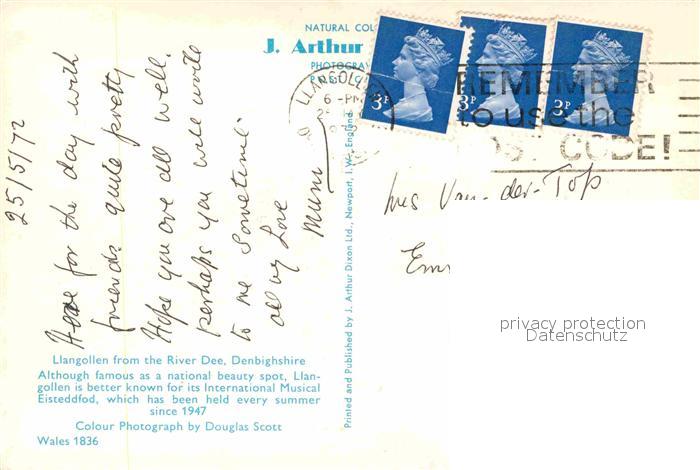 NATURAL COL
J. Arthur
PHOTOGRA
P
LLANGOLLE
6-PM
3P
3P
3P
REMEMBER
to use the
POST CODE!
25/5/72
Here for the day with
friends quite pretty
Hope you are all well.
perhaps you will write
to me Sometime!
all my Love
Mum
Mrs Van-der-Top
Printed and Published by J. Arthur Dixon Ltd., Newport, I.W., England.
privacy protection
Datenschutz
Llangollen from the River Dee, Denbighshire
Although famous as a national beauty spot, Llan-
gollen is better known for its International Musical
Eisteddfod, which has been held every summer
since 1947
Colour Photograph by Douglas Scott
Wales 1836